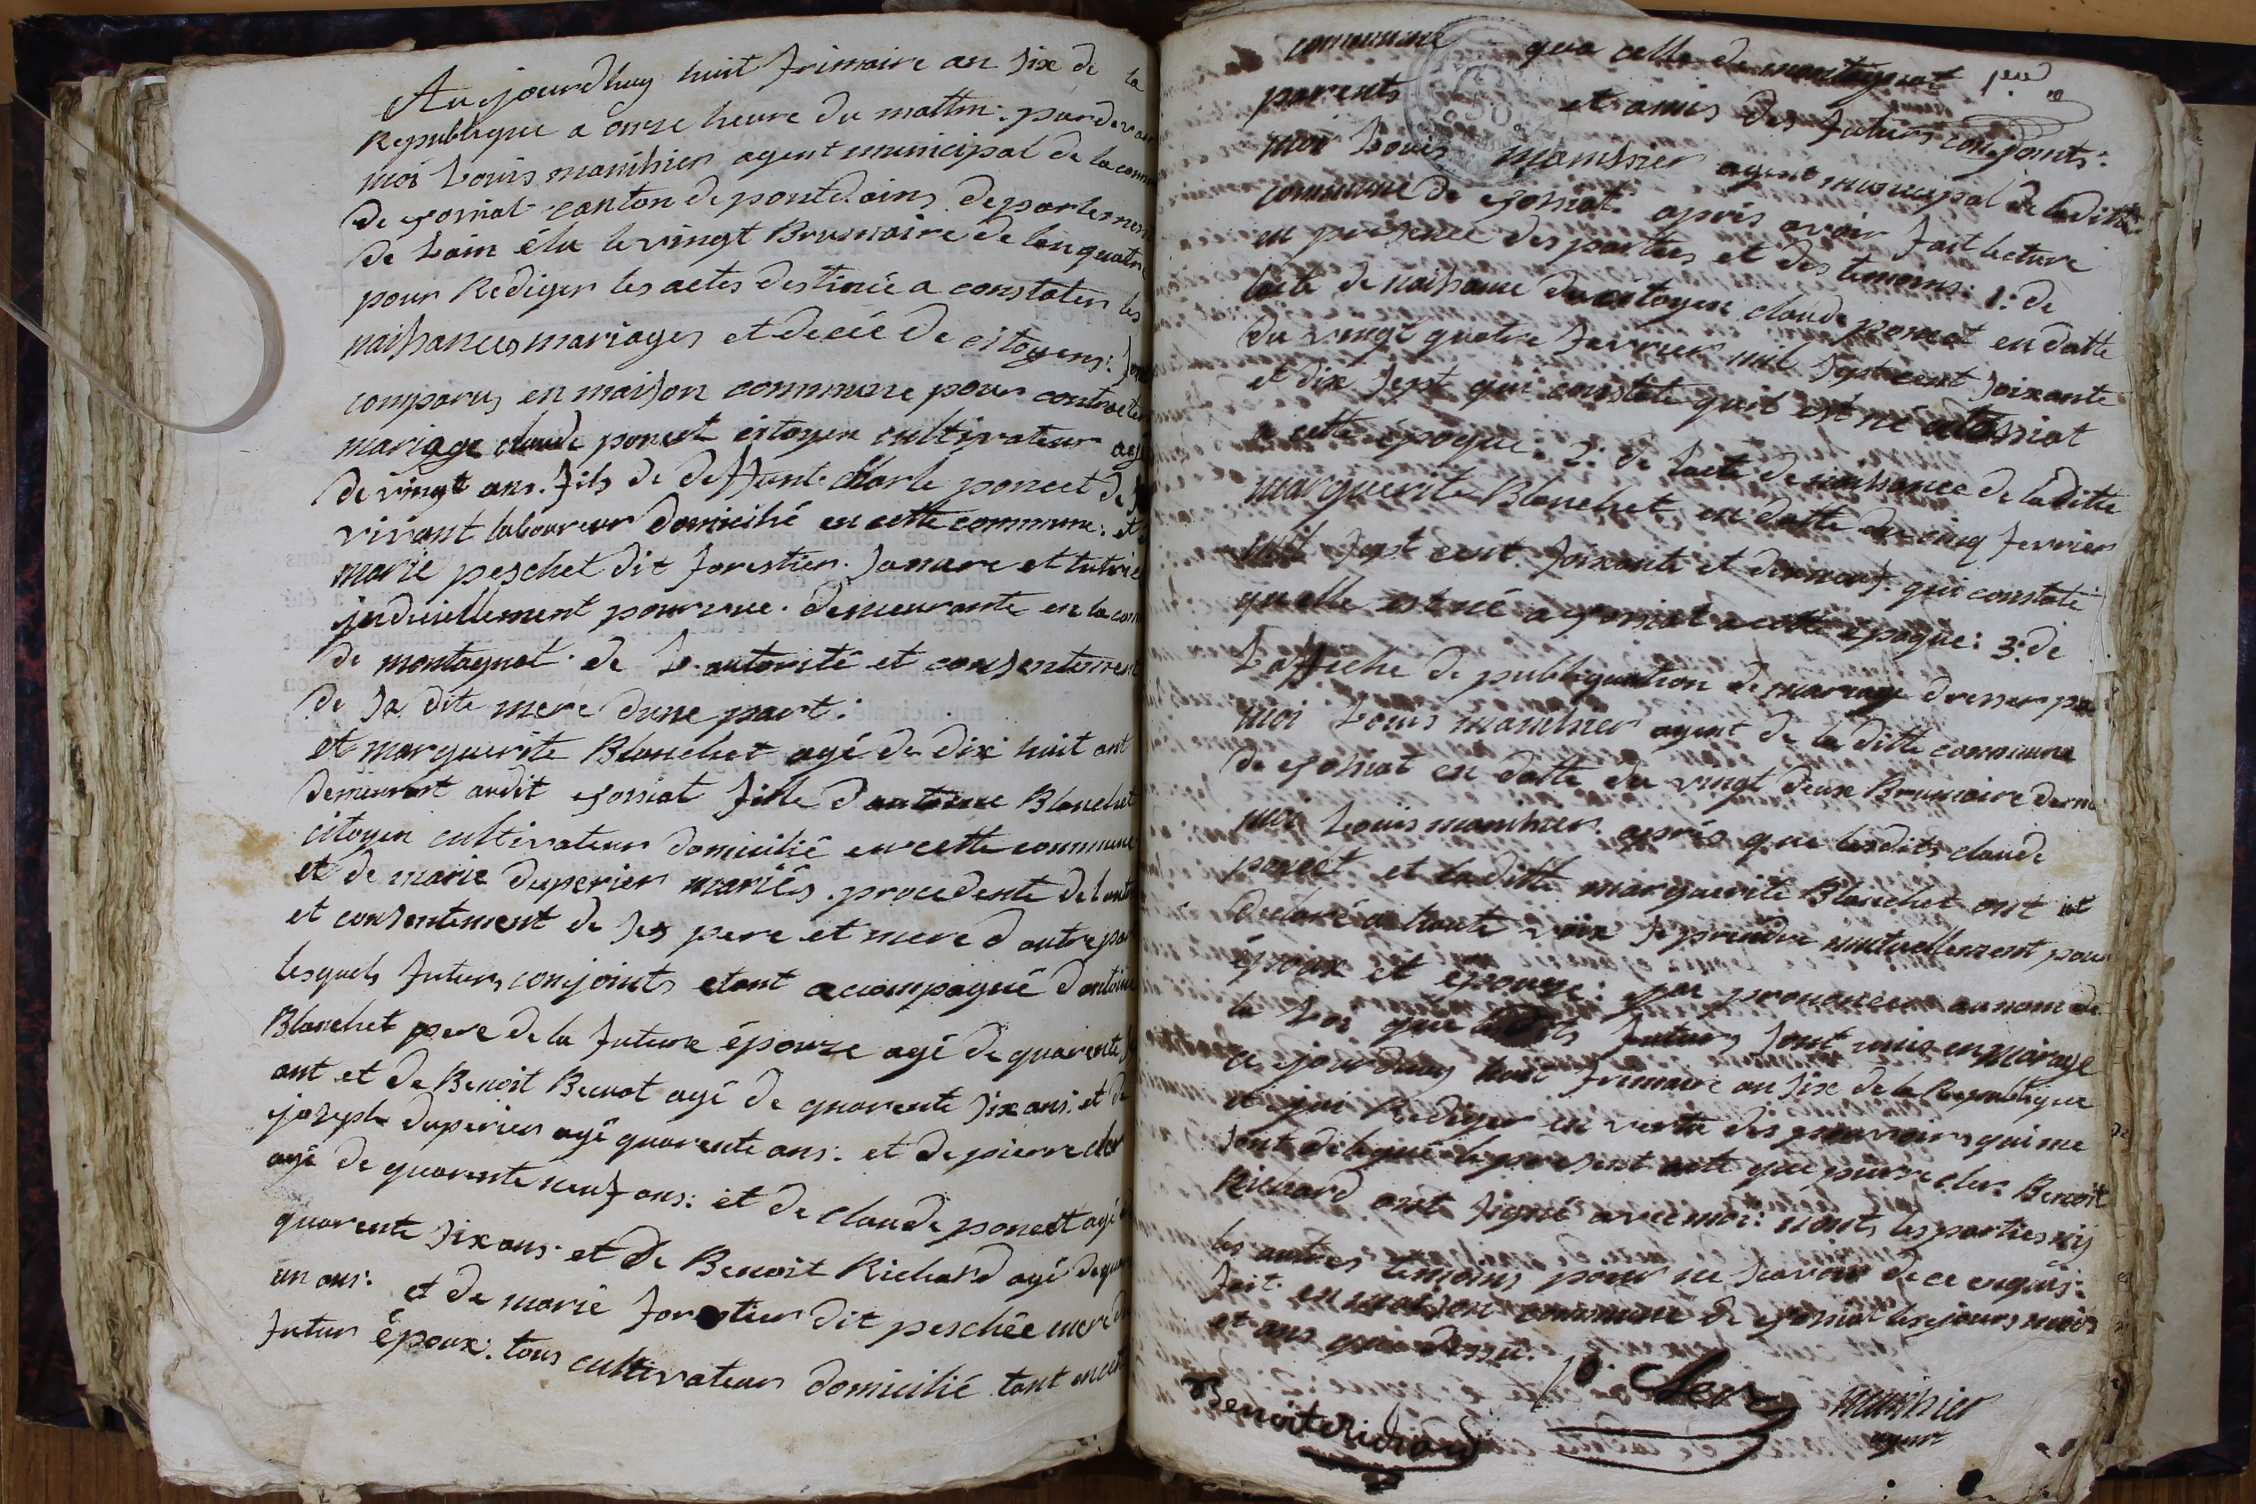 Aujourdhuy huit frimaire an six de la
Republique a onze heure du mattin: pardevan
moi Louis manihier agent municipal de la comm
de jossiat canton de pontdains departemen
de Lain élu le vingt Brumaire de lan quatre
pour Rediger les actes destinée a constater les
naissances mariages et decée de citoyens: son
comparus en maison commune pour contracter
mariage claude poncet citoyen cultivateur agé
de vingt ans. fils de deffunt. Charle poncet de
vivant laboureur domicilié en cette commune: et
marie peschet dit forestier. sa mere et tutrice
juduciellement pourvue. demeurante en la com
de montagnat. de L. autorité et consentement
de sa dite mere dune part:
et marguerite Blanchet agé de dix huit ant
demeurant audit jossiat fille dantoine Blanchet
citoyen cultivateur domicilié en cette commune
et de marie duperier mariés. procedente de laut
et consentement de ses pere et mere d autre par
lesquels futurs conjoints etant acompagné dantoine
Blanchet pere de la future épouze agé de quarente
ant et de Benoit Buvot agé de quarente six ans: et de
joseph duperier agé quarente ans: et de pierre cler
agé de quarente neuf ans: et de claude poncet agé
quarente six ans. et de Benoit Richard agé de quar
un ans: et de marie forestier dit peschée mere du
futur époux: tous cultivateur domicilié tant en cett
commune qua celle de montagnat
parents et amis des futurs conjoints:
moi Louis manihier agent municipal de ladite
commune de jossiat. après avoir fait lecture
en présence des parties et des temoins: 1: de
lacte de naissance du citoyen claude poncet en datte
du vingt quatre fevrier mil sept cent soixante
et dix sept qui constate quil est né a jossiat
a cette époque: 2: de lacte de naissance de la ditte
marguerite Blanchet en datte du cinq fevrier
mil sept cent soixante et dixneuf. qui constate
quelle est né a jossiat a cette époque: 3: de
Laffiche de publiquation de mariage dresser par
moi Louis manihier agent de la ditte commune
de jossiat en datte du vingt deux Brumaire dernie
moi Louis manihier. après que lesdits claude
poncet et la ditte marguerite Blanchet ont et
déclaré a haute voix se prendre mutuellement pour
époux et épouze: jai prononcer au nom de
la Loi que futurs sont unis en mariage
ce jourdhuy huit frimaire an six de la Republique
et jai Rediger en vertu des pouvoirs qui me
sont delegué le present acte que pierre cler. Benoit
Richard ont signé avec moi: nont les parties nij
les autres temoins pour ne scavoir de ce enquis:
fait en maison commune de jossiat les jours mois
et ans que dessu.
Benoit Richard
P Cler
manihier
agent